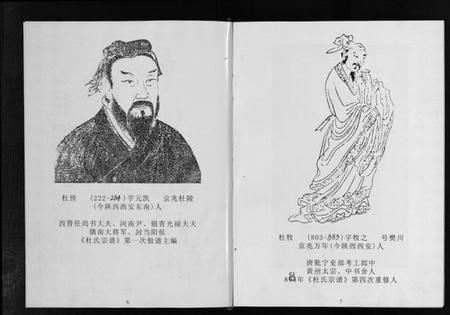 杜预 (222-284)字元凯 京兆杜陵
(今陕西西安东南)人
西晋任尚书大夫、河南尹、银青光禄大夫
镇南大将军、封当阳侯
《杜氏宗谱》第一次做谱主编
6
杜牧 (803-853)字牧之 号樊川
京兆万年(今陕西西安)人
唐乾宁吏部考工郎中
黄州太宗、中书舍人
年《杜氏宗谱》第四次重修人
7